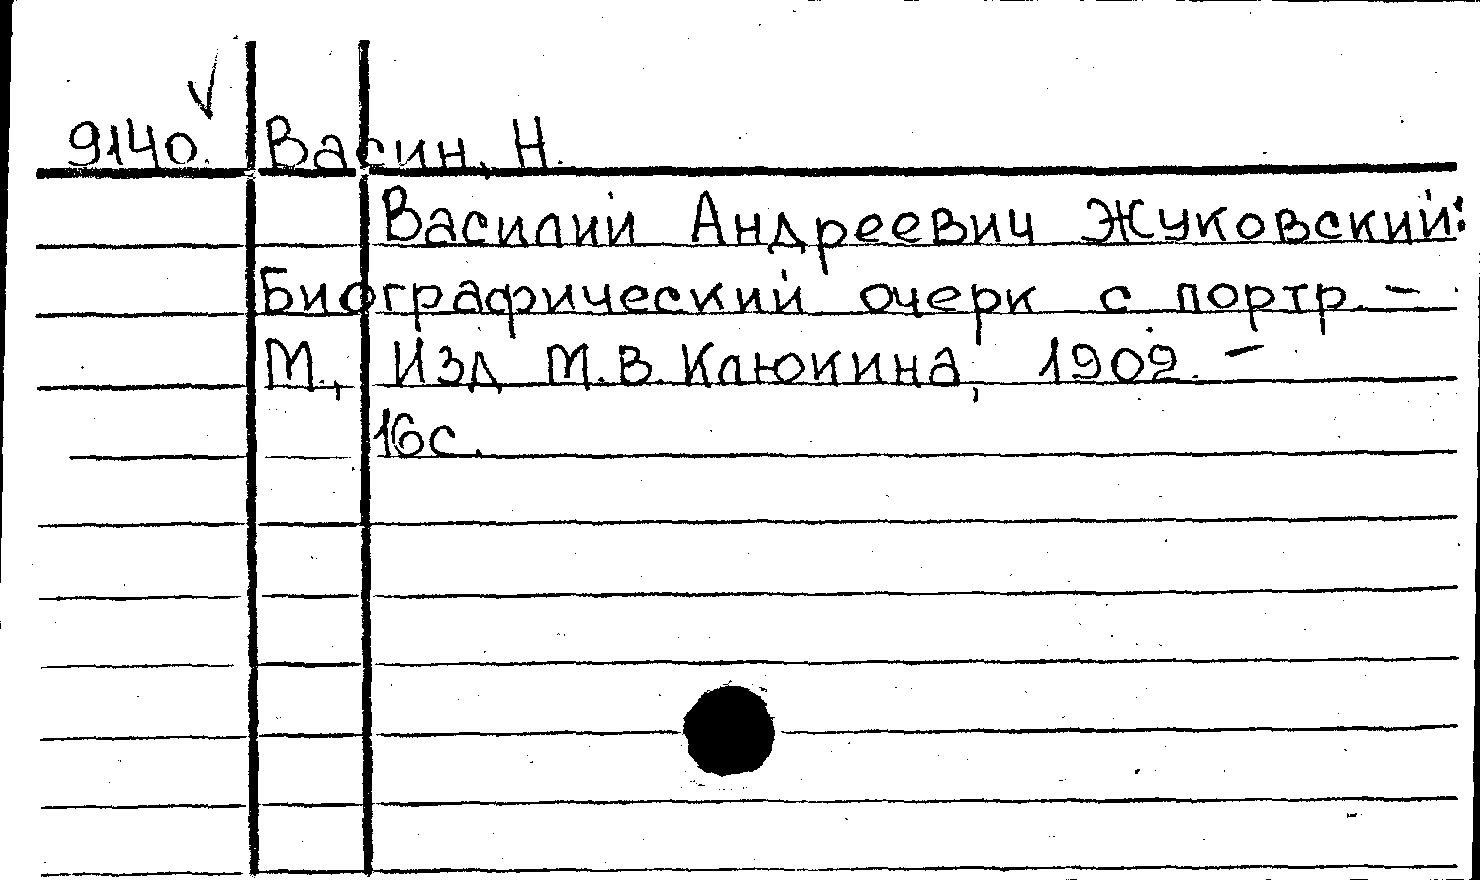 9140. Васин, Н.
Василий Андреевич Жуковский:
Биографический очерк с портр. –
М., Изд. М.В. Клюкина, 1902. –
16с.